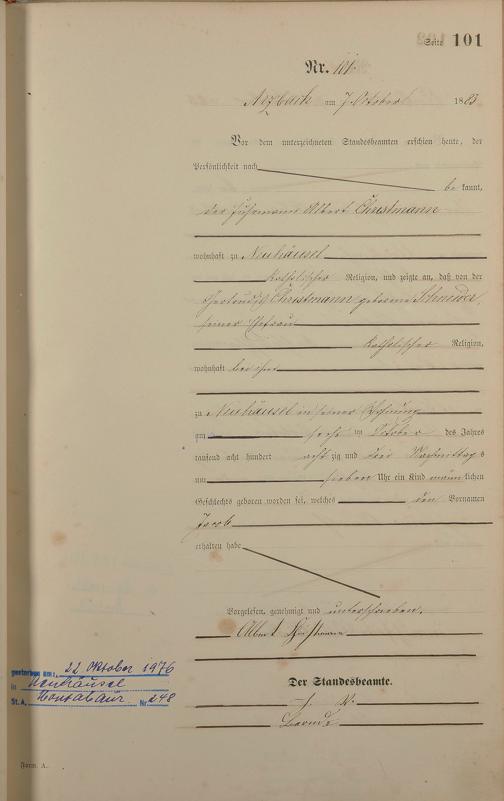 Seite 101
Nr. 101.
Arzbach am 7. October 1883
Vor dem unterzeichneten Standesbeamten erschien heute, der
Persönlichkeit nach
be kannt,
der Fuhrmann Albert Christmann
wohnhaft zu Neuhäusel
katholischer Religion, und zeigte an, daß von der
Christmann geborene Schneider,
seiner Ehefrau
katholischer Religion,
wohnhaft bei ihm
zu Neuhäusel in seiner Wohnung
am sechs ten October des Jahres
tausend acht hundert acht zig und drei Nachmittag s
um sieben Uhr ein Kind männ lichen
Geschlechts geboren worden sei, welches den Vornamen
Jacob
erhalten habe
Vorgelesen, genehmigt und unterschrieben.
Albert Christmann
Der Standesbeamte.
gestorben am: 22 Oktober 1976
in Neuhäusel
St. A. Montabaur Nr 248
Form. A.